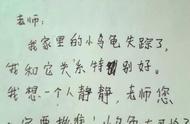 老师:
我家里的小乌龟失踪了,
我和它关系特别好。
我想一个人静静,老师您